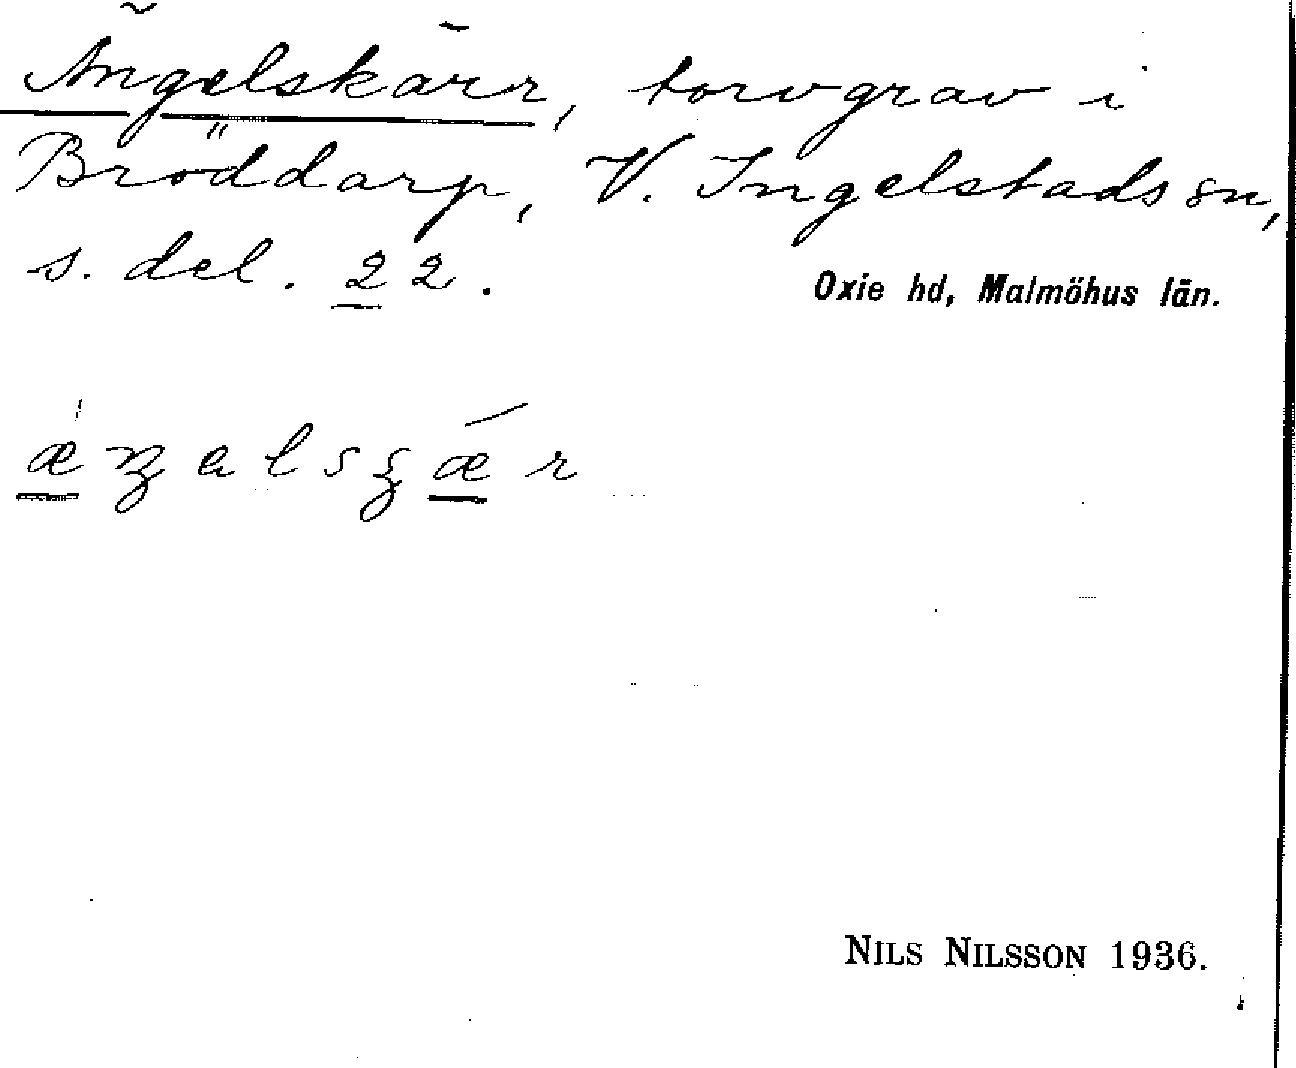 Ängelskärr, torvgrav i
Bröddarp, V. Ingelstads sn,
s. del. 22.
Oxie hd, Malmöhus län.
NILS NILSSON 1936.